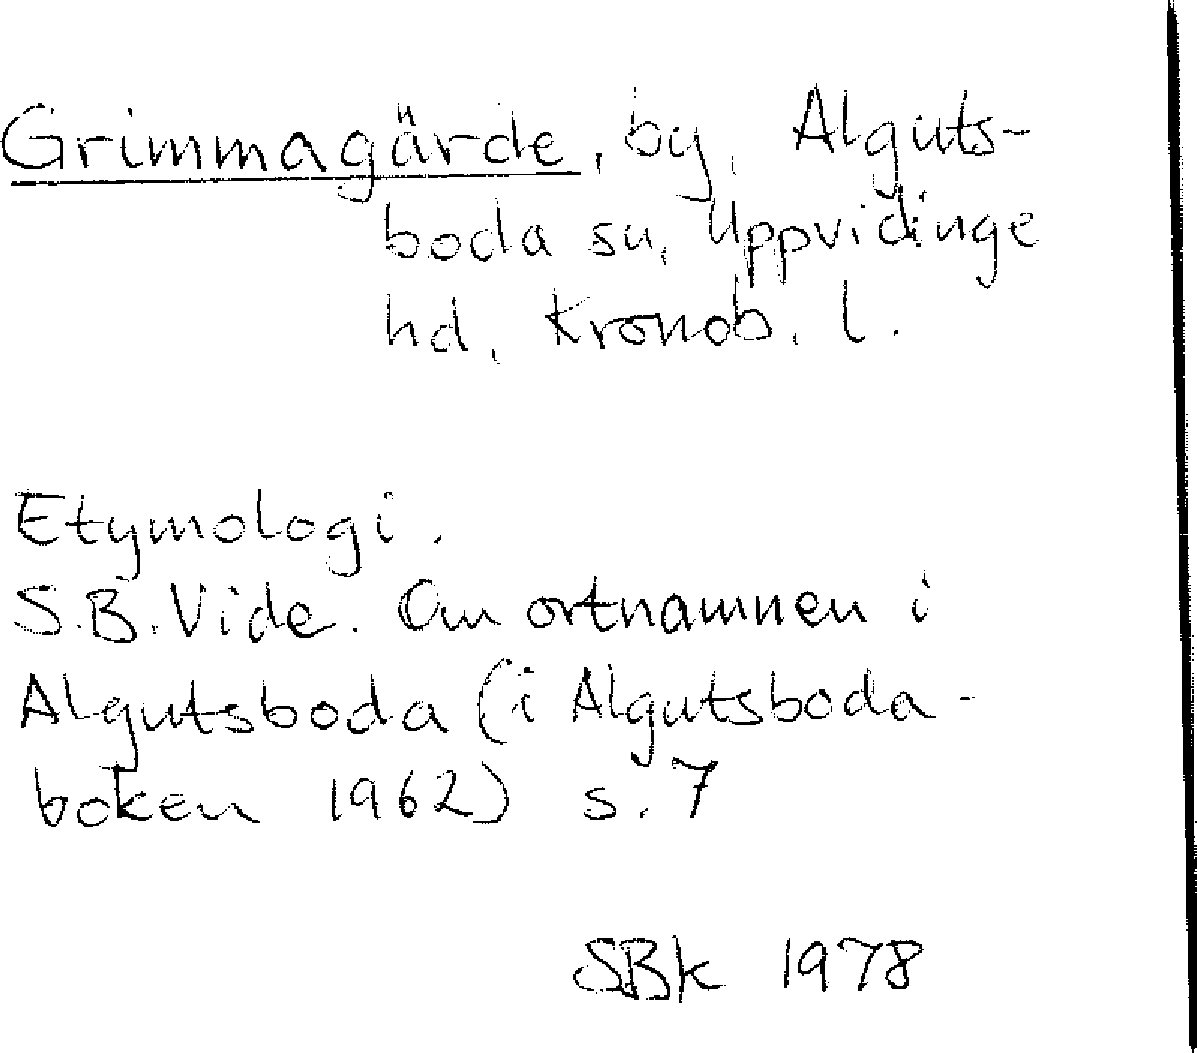 Grimmagärde, by, Alguts-
boda sn, Uppvidinge
hd, Kronob. l.
Etymologi.
S.B. Vide. Om ortnamnen i
Algutsboda (i Algutsboda-
boken 1962) s. 7
SBk 1978